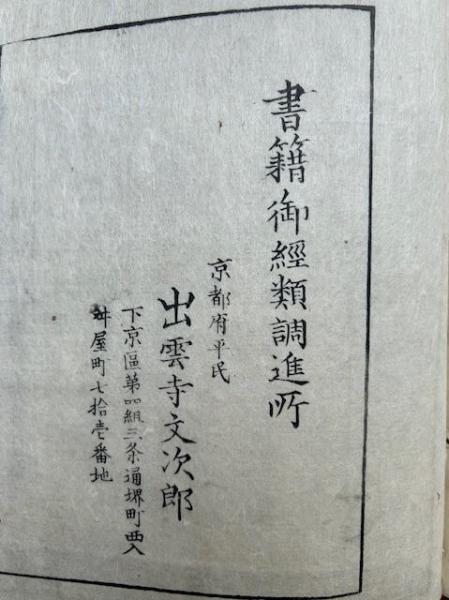 書籍御經類調進所
京都府平民
出雲寺文次郎
下京區第四組三条通堺町西入
舛屋町七拾壱番地